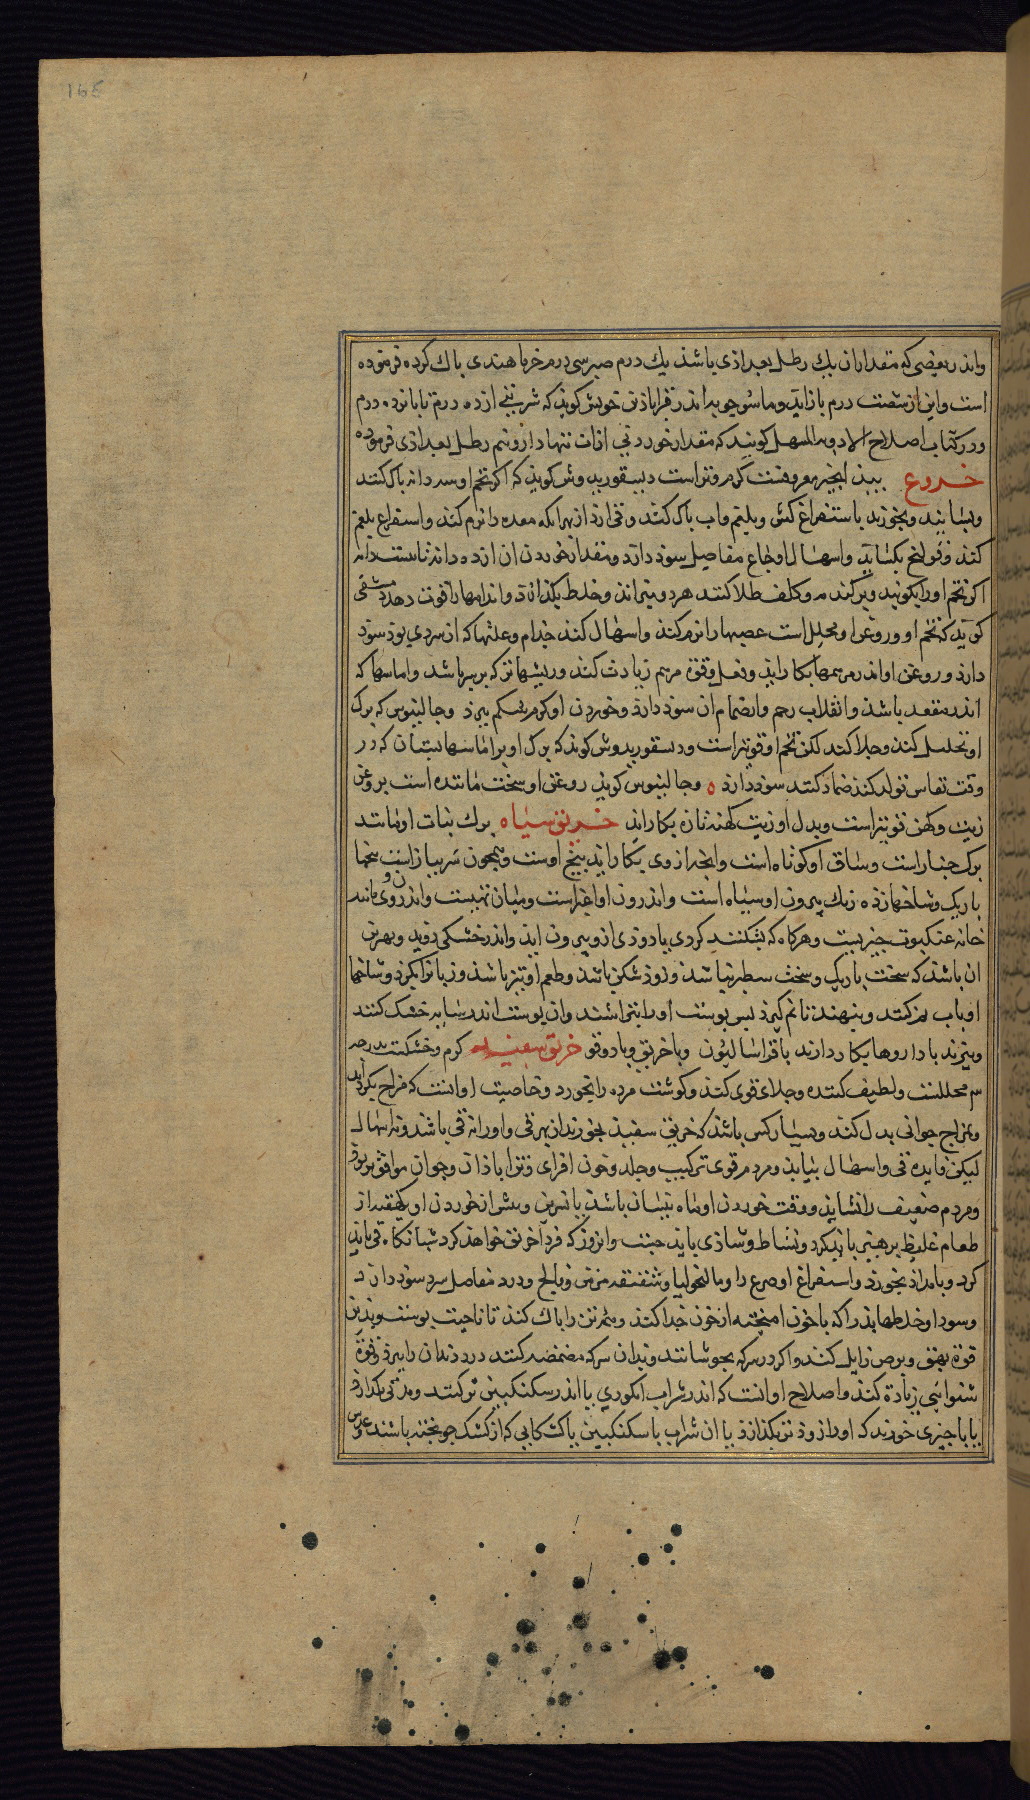 165
واندر بعضی که مقدار ان یک رطل بغدادی باشد یک درم صبر سی درم خرما هندی پاک کرده فرموده
است واین از شصت درم باز اید وماسویه اندر قرابادین خویش کوید که شربتی ازده درم تا پانزده درم
ودر کتاب اصلاح الادویه المسهل کویند که مقدار خوردنی ازان تنها دازو نیم رطل بغدادی فرموده
خروع بیذ انجیر معروفست کرم وتر است دیسقوریدوش کوید که اکر تخم او سی دانه پاک کنند
وبسایند وبخورند باستفراغ کش وبلغم واب پاک کند وقی ارد از بهر انکه معده را نرم کند واستفراغ بلغم
کند وقولنج بکشاید واسهال اوجاع مفاصل سود دارد ومقدار خوردن ان از ده دانه تا بیست دانه
اکر تخم اورا بکوبند وبر کندمه وکلف طلا کنند هردو ببراند وخلط بکدازد واندامها را قوت دهد دمشقی
کوید که تخم او وروغن او محلل است عصبها را نرم کند واسهال کند جذام وعلتها که از سردی بود سود
دارد وروغن او اندر مرهمها بکار اید وفعل وقوة مرهم زیادت کند وریشهاء تر که بر سر باشد واماسها که
اندر مقعد باشد وانقلاب رحم وانضمام ان سود دارد وخوردن او کرم شکم ببرد وجالینوس که برک
او تحلیل کند وجلا کند لکن تخم او قویتر است ودیسقوریدوش کوید که برک او بر اماسها پستان که در
وقت نفاس تولد کند ضماد کنند سود دارد ه وجالینوس کوید روغن او سخت ماننده است بروغن
زیت وکهن قویتر است وبدل او زیت کهنه تازه بکار اید خربق سیاه برک نبات او مانند
برک چنار است وساق او کوتاه است وانچه ازوی بکار اید بیخ اوست وهمچون سر پیاز است بیخها
باریک وشاخها زده رنک بیرون او سیاه است واندرون او اغبر است ومیان تهیست واندروی مانند
خانه عنکبوت چیزیست وهرکاه که بشکنند کردی یا دودی ازو بیرون اید واندر خشکی روید وبهرین
ان باشد که سخت باریک وسخت سطبر نباشد وزود شکن باشد وطعم او تیز باشد وزبانرا بکزد وشاخها
او باب تر کنند وبنهند تا نم کیرد پس پوست اورا بتراشند وان پوست اندر سایه خشک کنند
وببزند با داروها بکار دارند با قراسالیون وبا خربق وبا دوقو خربق سفید کرم وخشکست بدرجه
سه محللست ولطیف کننده وجلای قوی کند وکوشت مرده را بخورد وخاصیت او انست که مزاج بکرداند
وبمزاج جوانی بدل کند وبسیار کس باشد که خربق سفید بخورند از بهر قی واورا نه قی باشد ونه اسهال
لیکن فایده قی واسهال بیابند ومردم قوی ترکیب وجلد وخون افزای وتنرا باذان وجوان موافقتر بود
ومردم ضعیف را نشاید ووقت خوردن او ماه نیسان باشد یا تشرین وپیش از خوردن او یکهفته از
طعام غلیظ پرهیز باید کرد ونشاط وشادی باید جست وان روز که فردا خربق خواهد کرد شبانکاه قی باید
کرد وبامداد بخورد واستفراغ او صرع را ومالیخولیا وشقیقه مزمن وفالج ودرد مفاصل سرد سود دارد
وسودا وخلطها بد را که با خون امیخته از خون جدا کند وهمه تن را پاک کند تا ناحیت پوست وبدین
قوة بهق وبرص زایل کند واکر در سرکه بجوشانند وبدان سرکه مضمضه کنند درد دندان را ببرد وقوة
شنوایی زیادة کند واصلاح او انست که اندر شراب انکوری یا اندر سکنکبین تر کنند ومدتی بکدارند
یا با چیزی خورند که اورا زودتر بکذارد یا ان شراب یا سکنکبین یا کشکابی که از کشک جو پخته باشند وعدس